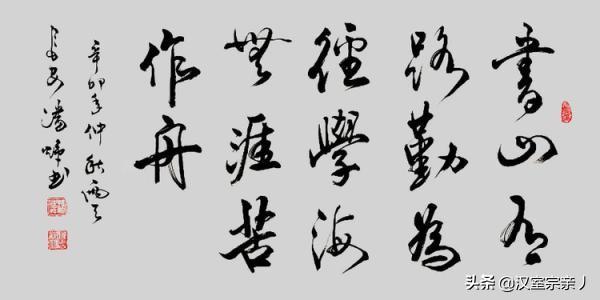 書山有
路勤為
徑學海
無涯苦
作舟
辛卯年仲秋
头条 @汉室宗亲丿